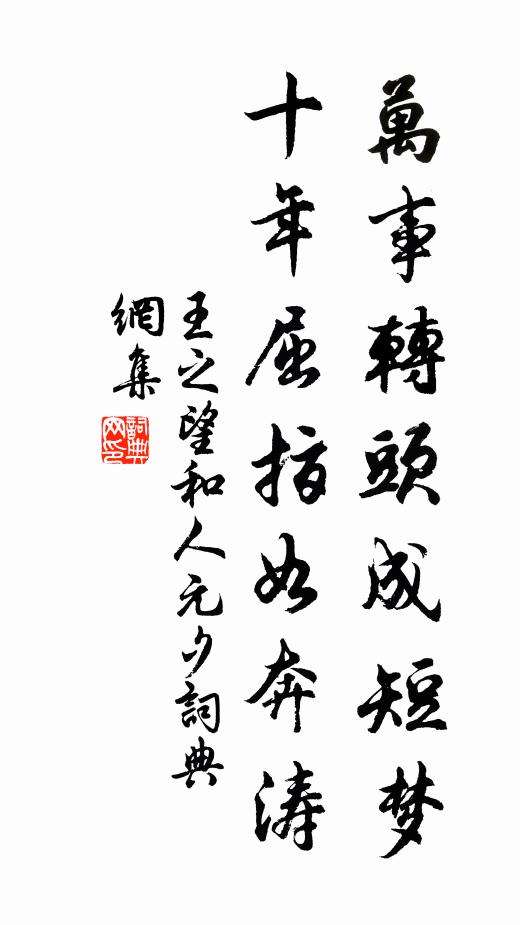 萬事轉頭成短梦
十年屈指如奔涛
王之望和人元夕詞典
網集
詞典
网印